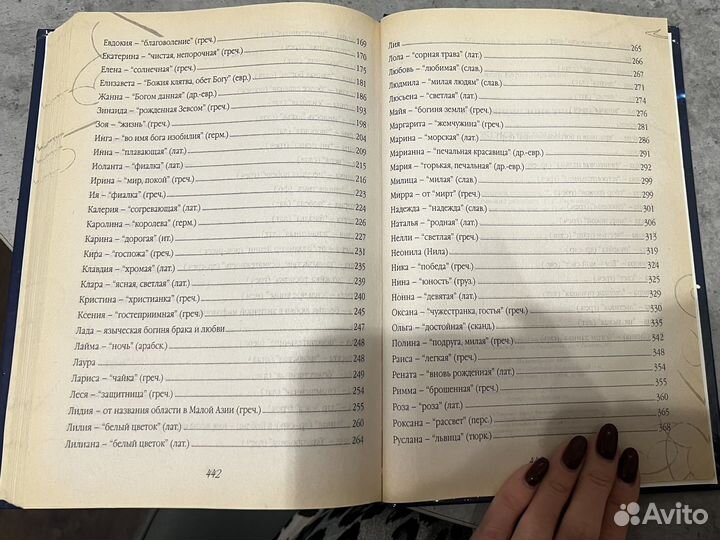 Евдокия – "благоволение" (греч.) 169
Екатерина – "чистая, непорочная" (греч.) 170
Елена – "солнечная" (греч.) 175
Елизавета – "Божия клятва, обет Богу" (евр.) 181
Жанна – "Богом данная" (др.-евр.) 186
Зинаида – "рожденная Зевсом" (греч.) 193
Зоя – "жизнь" (греч.) 198
Инга – "во имя бога изобилия" (герм.) 204
Инна – "плавающая" (лат.) 209
Иоланта – "фиалка" (лат.) 215
Ирина – "мир, покой" (греч.) 216
Ия – "фиалка" (греч.) 223
Калерия – "согревающая" (лат.) 224
Каролина – "королева" (герм.) 226
Карина – "дорогая" (ит.) 227
Кира – "госпожа" (греч.) 231
Клавдия – "хромая" (лат.) 235
Клара – "ясная, светлая" (лат.) 238
Кристина – "христианка" (греч.) 240
Ксения – "гостеприимная" (греч.) 245
Лада – языческая богиня брака и любви 247
Лайма – "ночь" (арабск.) 248
Лаура 248
Лариса – "чайка" (греч.) 249
Леся – "защитница" (греч.) 254
Лидия – от названия области в Малой Азии (греч.) 255
Лилия – "белый цветок" (лат.) 260
Лилиана – "белый цветок" (лат.) 264
442
Лия 265
Лола – "сорная трава" (лат.) 266
Любовь – "любимая" (слав.) 267
Людмила – "милая людям" (слав.) 271
Люсьена – "светлая" (лат.) 274
Майя – "богиня земли" (греч.) 276
Маргарита – "жемчужина" (греч.) 281
Марина – "морская" (лат.) 286
Марианна – "печальная красавица" (др.-евр.) 291
Мария – "горькая, печальная" (др.-евр.) 292
Милица – "милая" (слав.) 299
Мирра – от "мирт" (греч.) 299
Надежда – "надежда" (слав.) 301
Наталья – "родная" (лат.) 306
Нелли – "светлая" (греч.) 313
Неонила (Нила) 319
Ника – "победа" (греч.) 324
Нина – "юность" (груз.) 324
Нонна – "девятая" (лат.) 329
Оксана – "чужестранка, гостья" (греч.) 330
Ольга – "достойная" (сканд.) 335
Полина – "подруга, милая" (греч.) 342
Раиса – "легкая" (греч.) 348
Рената – "вновь рожденная" (лат.) 354
Римма – "брошенная" (греч.) 355
Роза – "роза" (лат.) 360
Роксана – "рассвет" (перс.) 365
Руслана – "львица" (тюрк.) 368
Avito